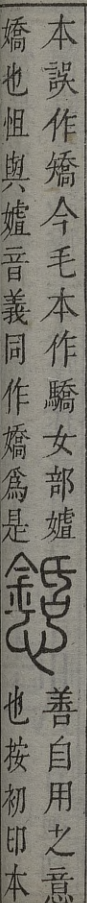 本誤作矯今毛本作驕女部㜘
嬌也怚與㜘音義同作嬌爲是
懖
善自用之意
也按初印本